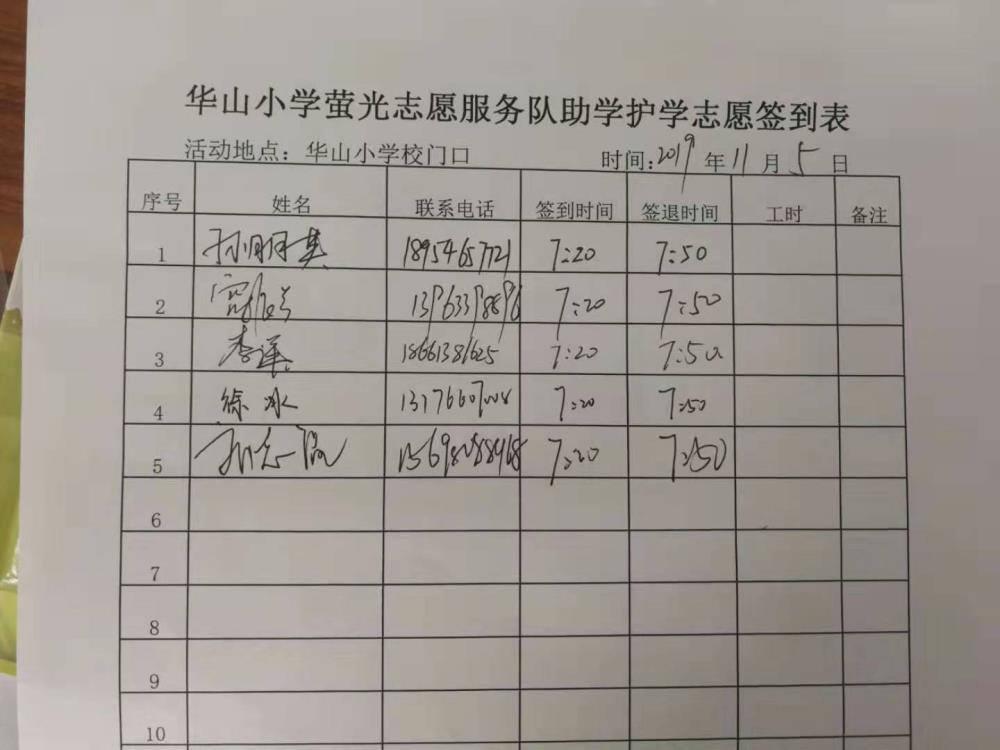 华山小学萤光志愿服务队助学护学志愿签到表
活动地点：华山小学校门口 时间：2019年11月5日
序号 姓名 联系电话 签到时间 签退时间 工时 备注
1 孙明英 18954657721 7:20 7:50
2 7:20 7:50
3 李萍 18661381625 7:20 7:50
4 徐冰 7:20 7:50
5 7:20 7:50
6
7
8
9
10